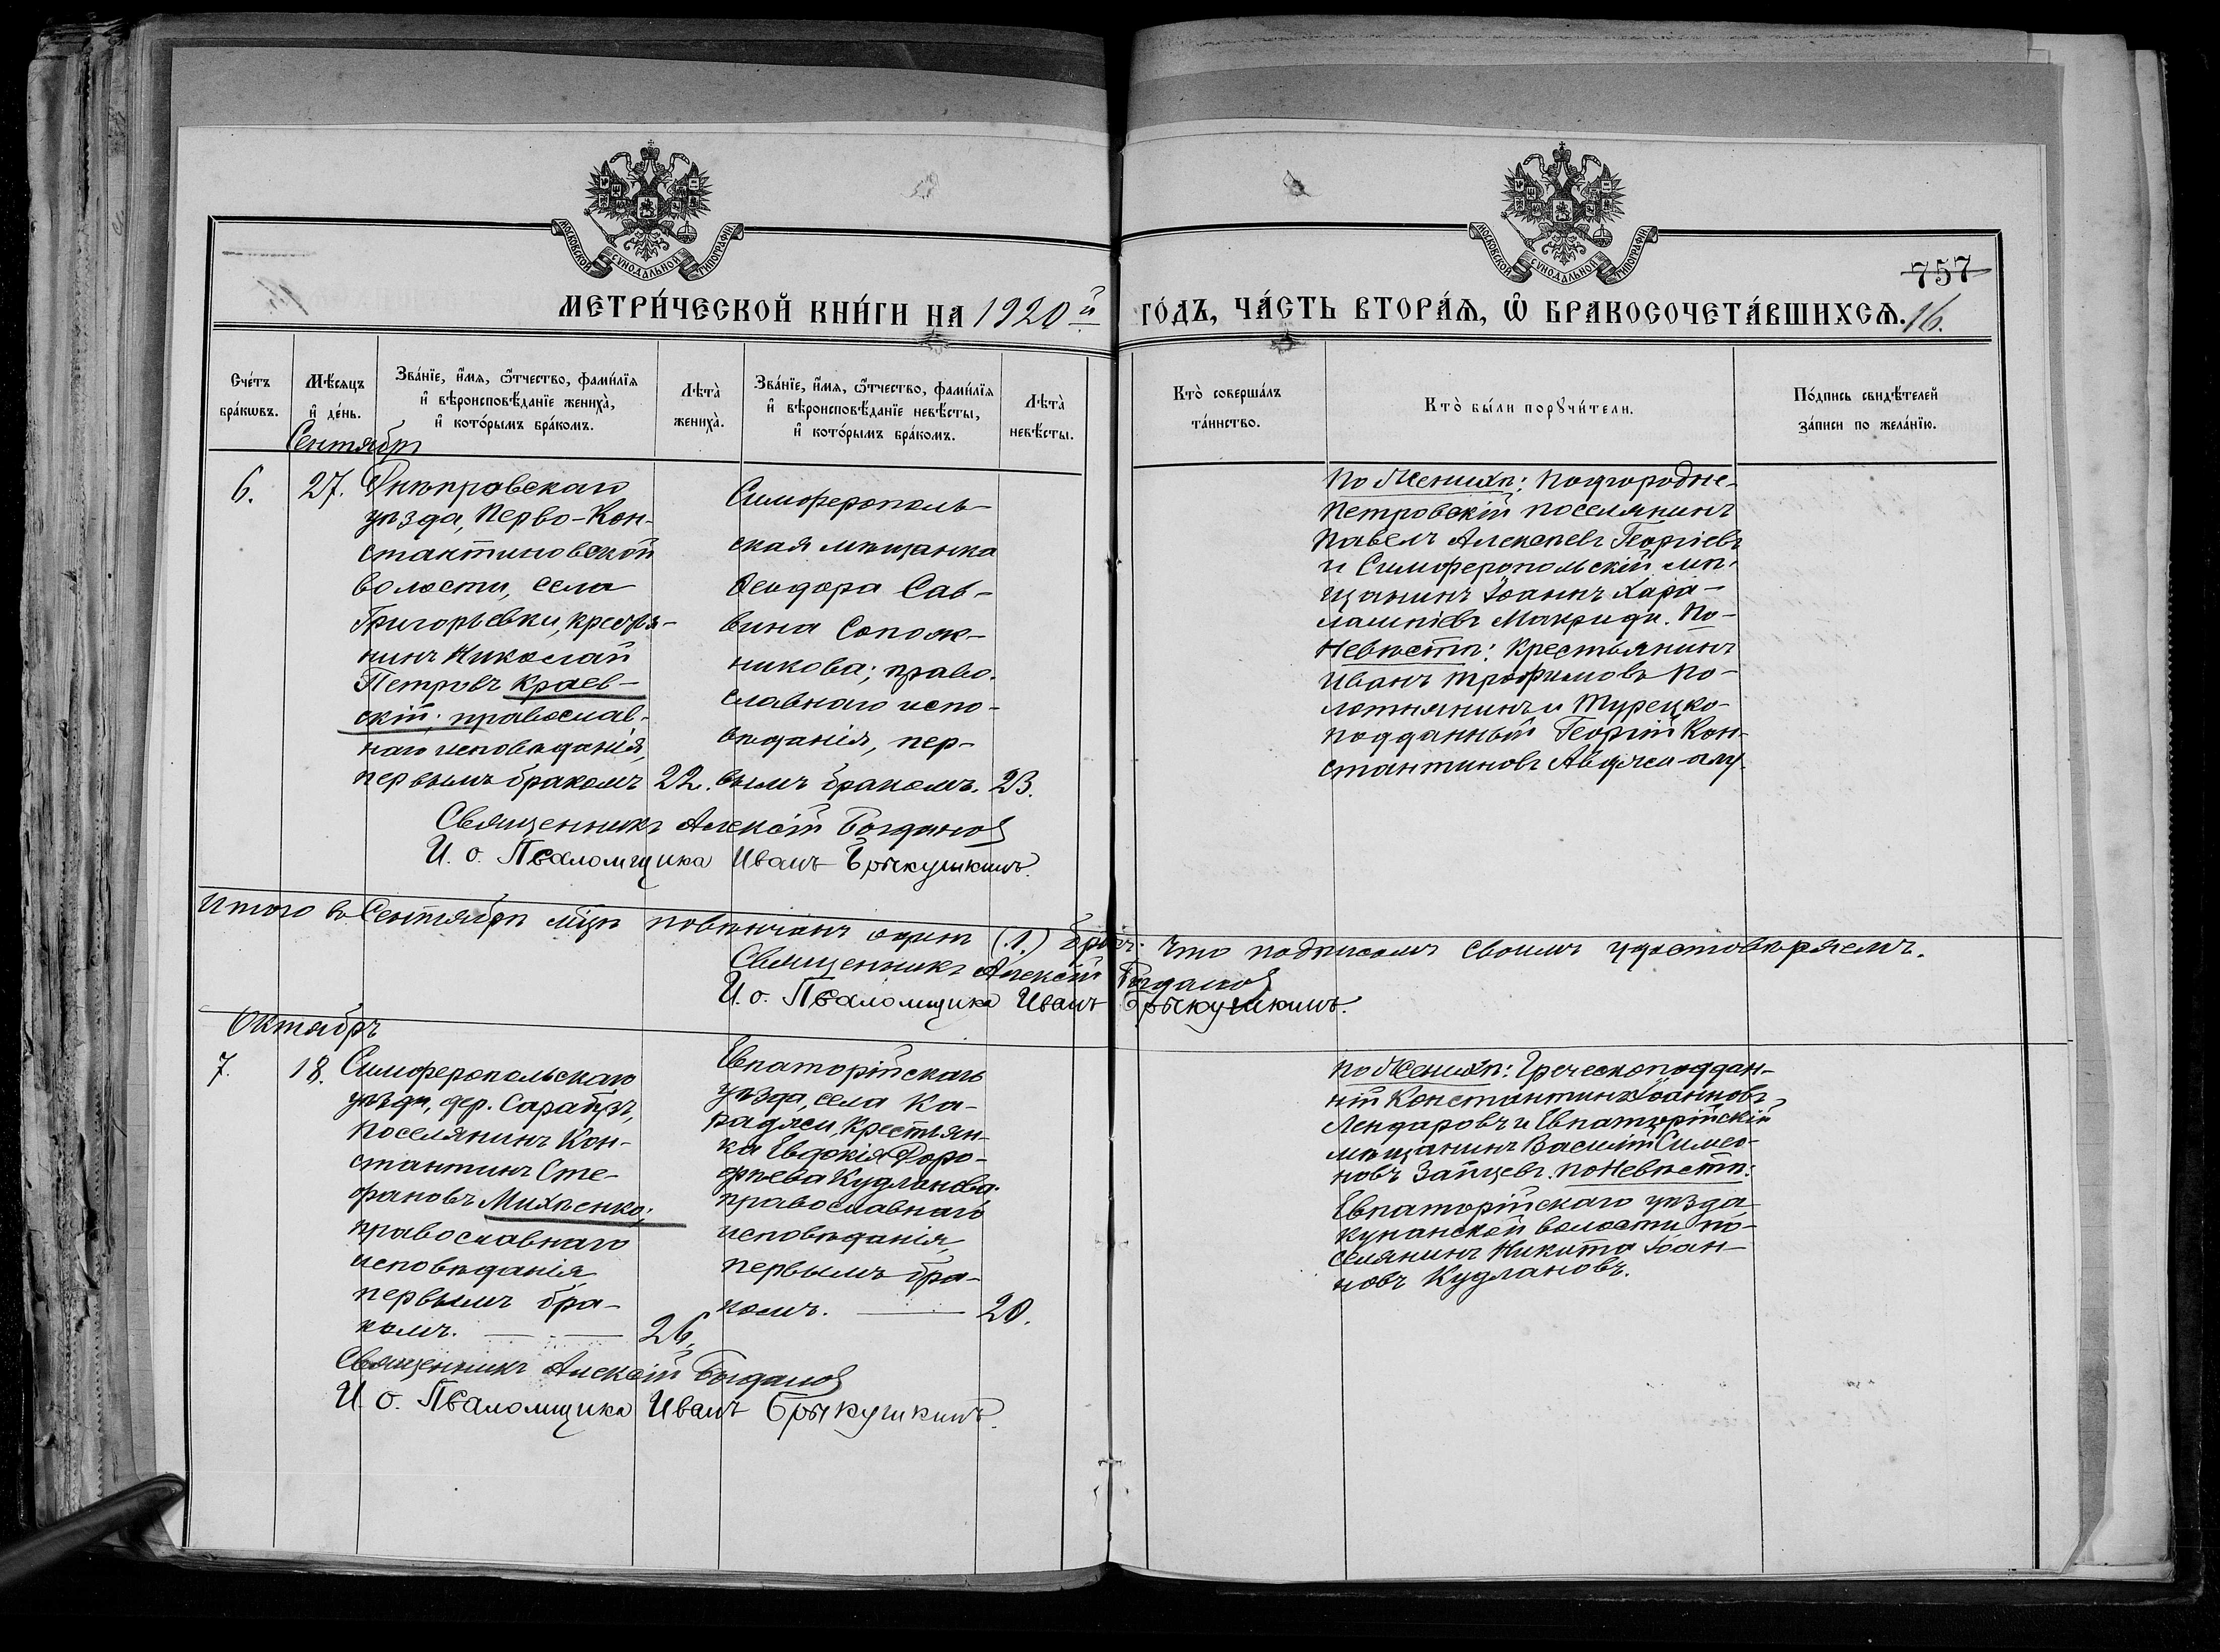 МОСКОВСКОЙ СѴНОДАЛЬНОЙ ТИПОГРАФІИ
МОСКОВСКОЙ СѴНОДАЛЬНОЙ ТИПОГРАФІИ
757
МЕТРИ́ЧЕСКОЙ КНИ́ГИ НА 1920й ГО́ДЪ, ЧА́СТЬ ВТОРА́Ѧ, Ѽ БРАКОСОЧЕТА́ВШИХСѦ. 16.
Сче́тъ
бра́кѡвъ.
Мѣ́сяцъ
и҆ де́нь.
Зва́нїе, и҆́мя, ѻ҆́тчество, фами́лїя
и҆ вѣроисповѣ́данїе жениха̀,
и҆ кото́рымъ бра́комъ.
Лѣта̀
жениха̀.
Зва́нїе, и҆́мя, ѻ҆́тчество, фами́лїя
и҆ вѣроисповѣ́данїе невѣ́сты,
и҆ кото́рымъ бра́комъ.
Лѣта̀
невѣ́сты.
Кто̀ соверша́лъ
та́инство.
Кто̀ бы́ли порꙋчи́тели.
По́дпись свидѣ́телей
за́писи по жела́нїю.
Сентябрь
6.
27.
Днѣпровскаго
уѣзда, Перво-Кон-
стантиновской
волости, села
Григорьевки, крестья-
нинъ Николай
Петровъ Краев-
скій; православ-
наго исповѣданія,
первымъ бракомъ
22.
Симферополь-
ская мѣщанка
Ѳеодора Сав-
вина Сопож-
никова; право-
славнаго испо-
вѣданія, пер-
вымъ бракомъ.
23.
По Женихѣ: Подгородне-
Петровскій поселянинъ
Павелъ Алексѣевъ Георгіевъ
и Симферопольскій мѣ-
щанинъ Іоаннъ Хара-
лампіевъ Макриди. По-
Невѣстѣ: Крестьянинъ
Иванъ Трофимовъ По-
лотнянинъ и Турецко-
подданный Георгій Кон-
стантиновъ
Священникъ Алексій Богданов
И. о. Псаломщика Иванъ Брыкушкинъ.
Итого въ Сентябрѣ мцѣ повѣнчанъ одинъ (1.) бракъ. Что подписомъ своимъ удостовѣряемъ.
Священникъ Алексій Богданов
И. о. Псаломщика Иванъ Брыкушкинъ.
Октябрь
7.
18.
Симферопольскаго
уѣзда, дер. Сарабузъ,
поселянинъ Кон-
стантинъ Сте-
фановъ Михѣенко;
православнаго
исповѣданія
первымъ бра-
комъ.
26.
Евпаторійскаго
уѣзда, села Ка-
раджи, крестьян-
ка Евдокія Доро-
фѣева Кудланова.
православнаго
исповѣданія,
первымъ бра-
комъ.
20.
По Женихѣ: Греческоподдан-
ный Константинъ Іоанновъ
Лендаровъ и Евпаторійскій
мѣщанинъ Василій Симео-
новъ Зайцевъ. По Невѣстѣ:
Евпаторійскаго уѣзда
Кунанской волости по-
селянинъ Никита Іоан-
новъ Кудлановъ.
Священникъ Алексій Богданов
И. о. Псаломщика Иванъ Брыкушкинъ.